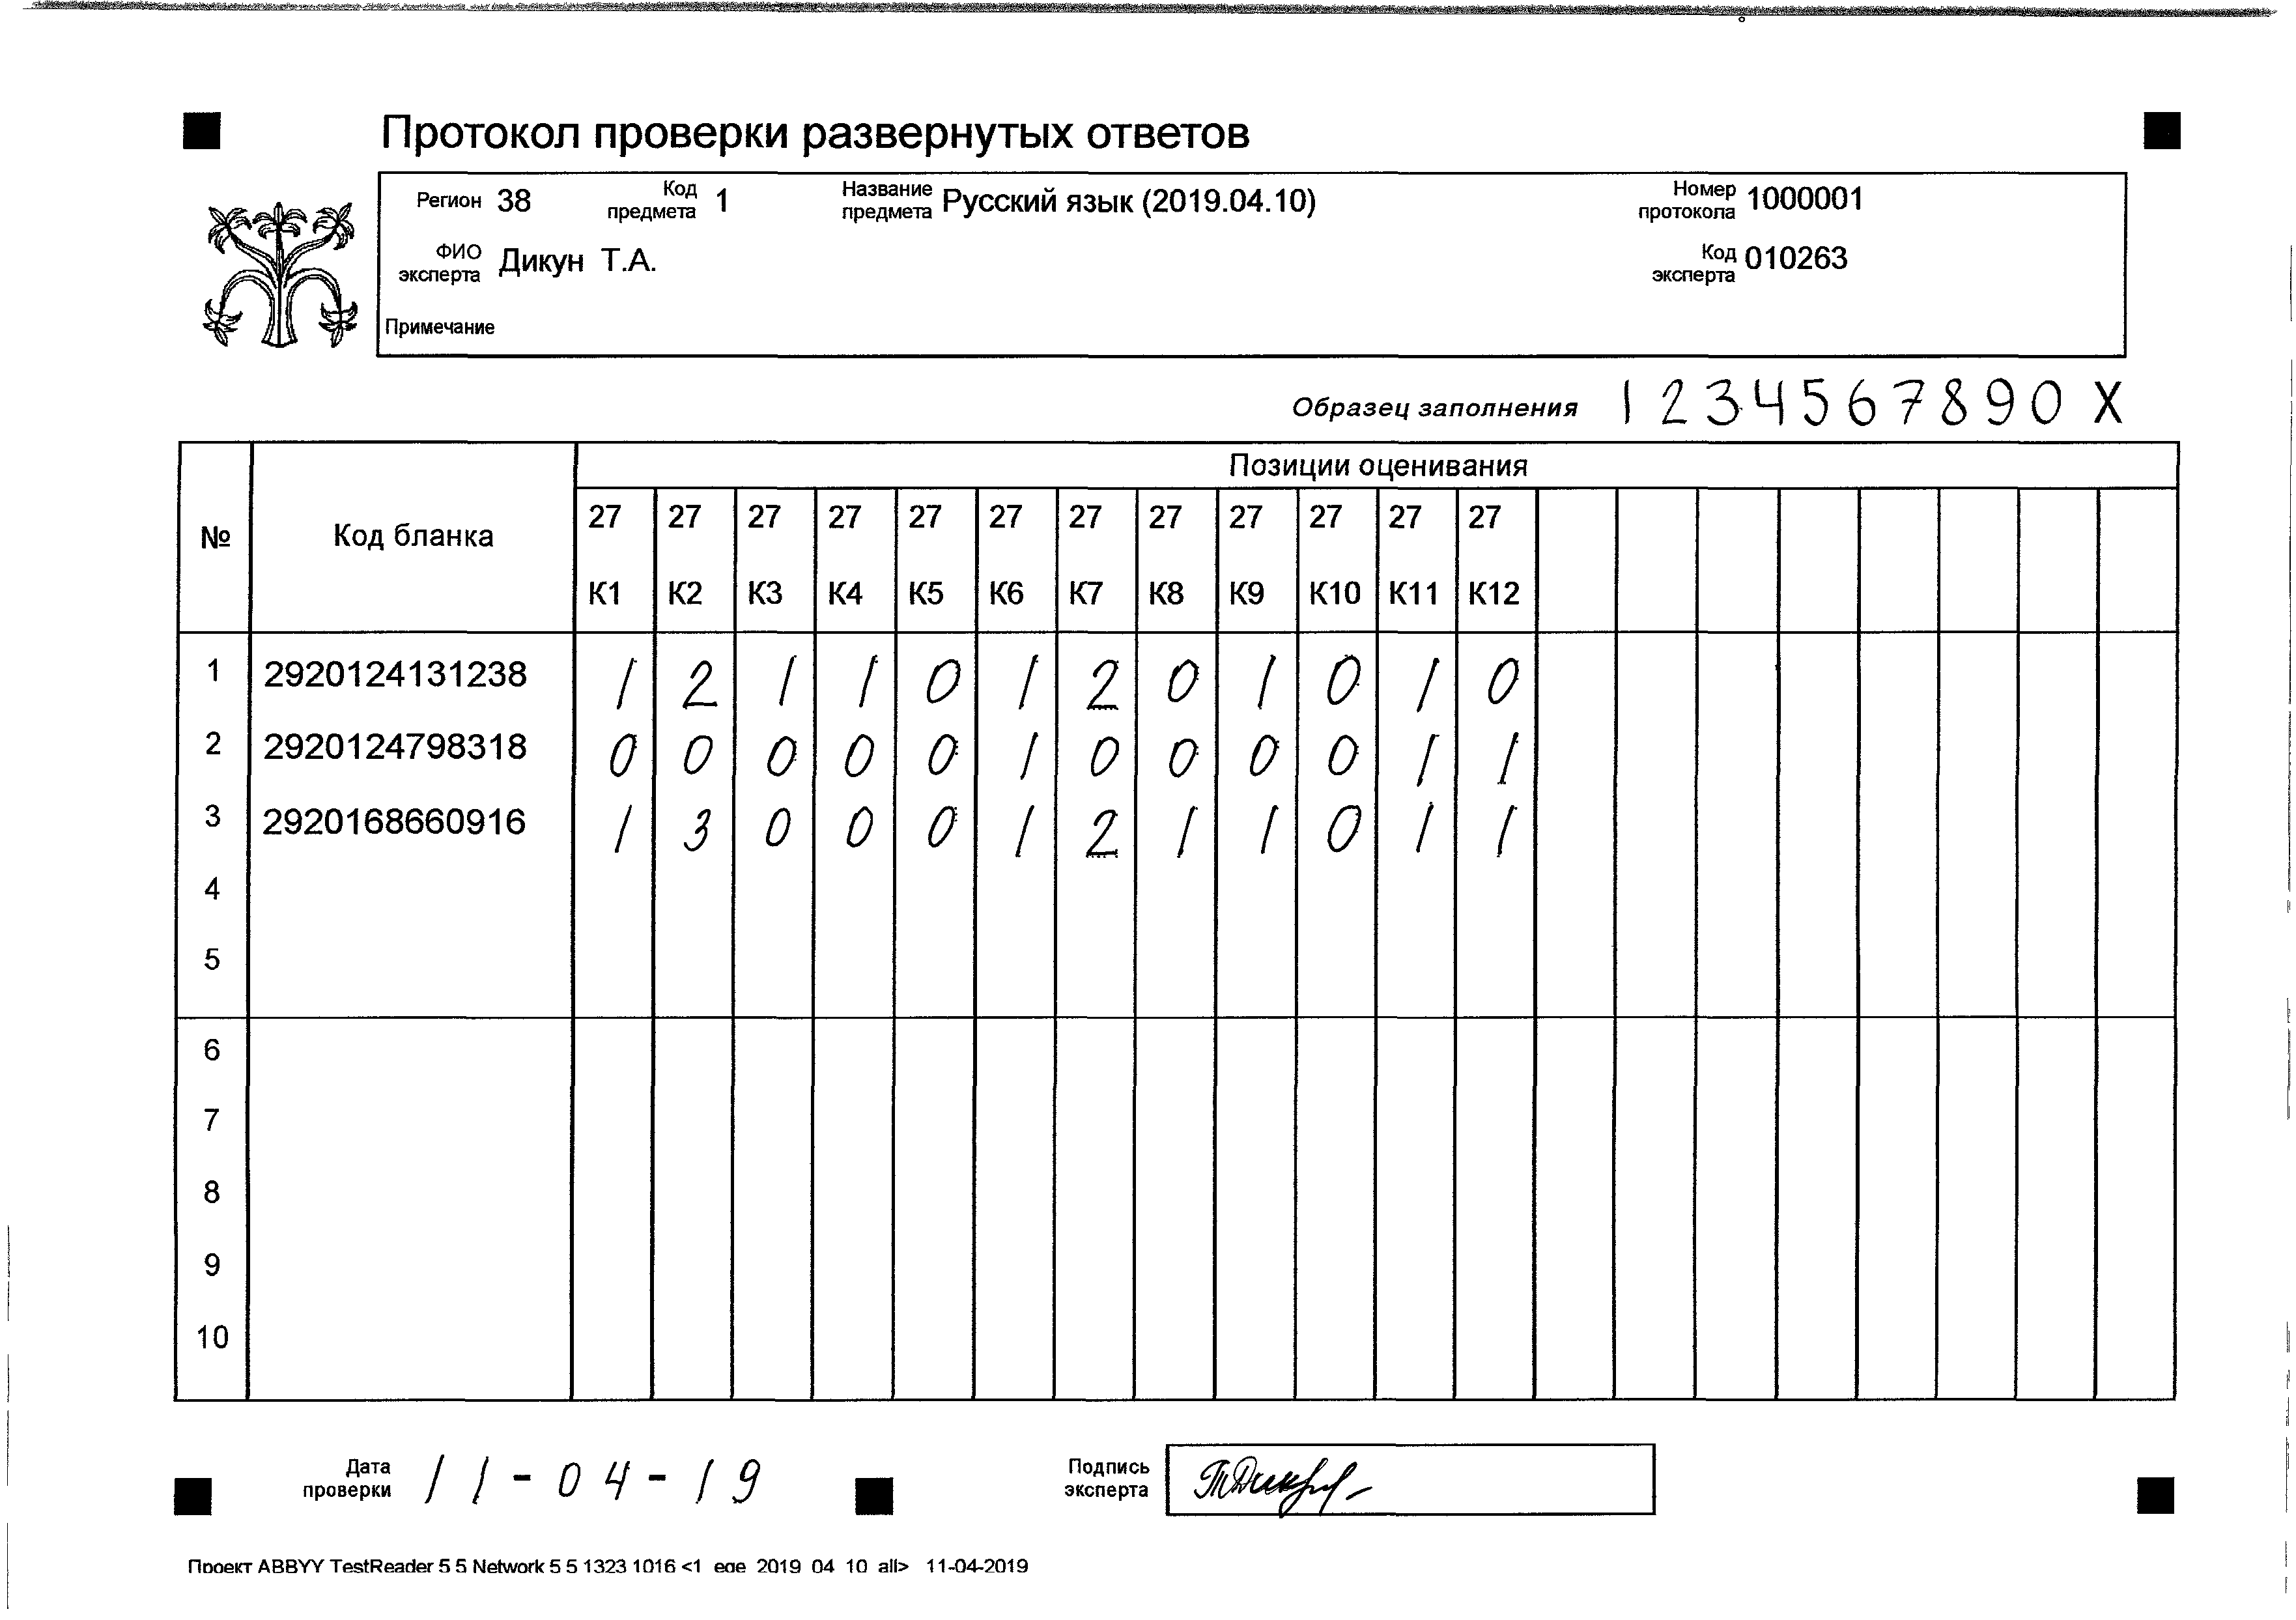 Протокол проверки развернутых ответов
Регион 38 Код предмета 1 Название предмета Русский язык (2019.04.10) Номер протокола 1000001
ФИО эксперта Дикун Т.А. Код эксперта 010263
Примечание
Образец заполнения 1 2 3 4 5 6 7 8 9 0 X
Позиции оценивания
№ Код бланка 27 27 27 27 27 27 27 27 27 27 27 27
К1 К2 К3 К4 К5 К6 К7 К8 К9 К10 К11 К12
1 2920124131238 1 2 1 1 0 1 2 0 1 0 1 0
2 2920124798318 0 0 0 0 0 1 0 0 0 0 1 1
3 2920168660916 1 3 0 0 0 1 2 1 1 0 1 1
4
5
6
7
8
9
10
Дата проверки 11-04-19 Подпись эксперта
Проект ABBYY TestReader 5 5 Network 5 5 1323 1016 <1 ege 2019 04 10 all> 11-04-2019